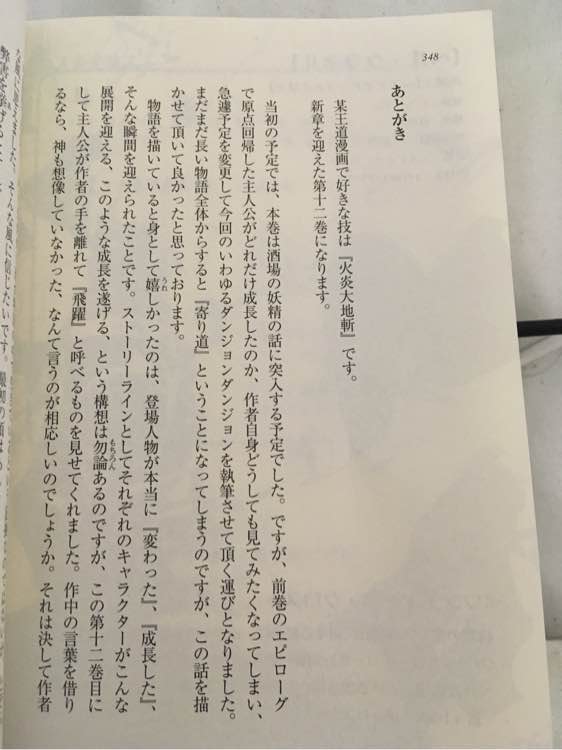 348
あとがき
某王道漫画で好きな技は『火炎大地斬』です。
新章を迎えた第十二巻になります。
当初の予定では、本巻は酒場の妖精の話に突入する予定でした。ですが、前巻のエピローグ
で原点回帰した主人公がどれだけ成長したのか、作者自身どうしても見てみたくなってしまい、
急遽予定を変更して今回のいわゆるダンジョンダンジョンを執筆させて頂く運びとなりました。
まだまだ長い物語全体からすると『寄り道』ということになってしまうのですが、この話を描
かせて頂いて良かったと思っております。
物語を描いていると身として嬉しかったのは、登場人物が本当に『変わった』、『成長した』、
そんな瞬間を迎えられたことです。ストーリーラインとしてそれぞれのキャラクターがこんな
展開を迎える、このような成長を遂げる、という構想は勿論あるのですが、この第十二巻目に
して主人公が作者の手を離れて『飛躍』と呼べるものを見せてくれました。作中の言葉を借り
るなら、神も想像していなかった、なんて言うのが相応しいのでしょうか。それは決して作者